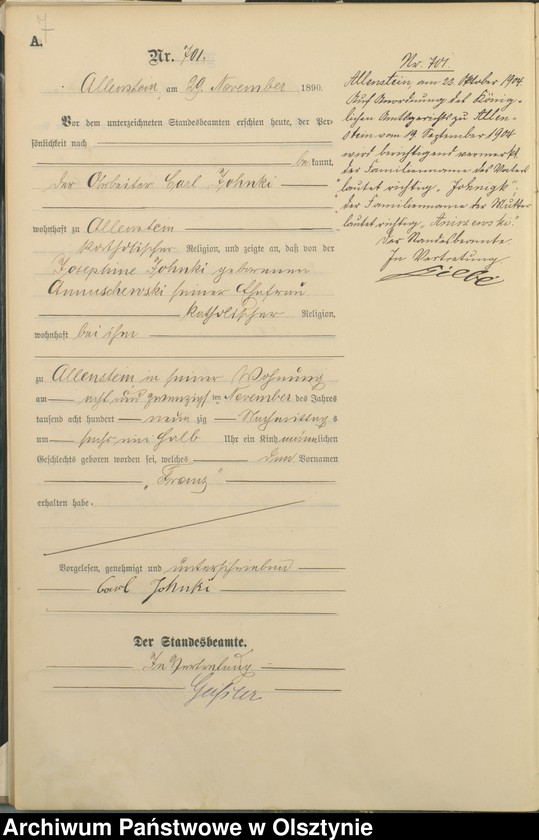 7
A.
Nr. 701.
Allenstein, am 29. November 1890.
Vor dem unterzeichneten Standesbeamten erschien heute, der Per-
sönlichkeit nach
bekannt,
der Arbeiter Carl Johnki
wohnhaft zu Allenstein
katholischer Religion, und zeigte an, daß von der
Josephine Johnki geborenen
Annuschewski seiner Ehefrau
katholischer Religion,
wohnhaft bei ihm
zu Allenstein in seiner Wohnung
am acht und zwanzigsten November des Jahres
tausend acht hundert neunzig Nachmittags
um sechs ein halb Uhr ein Kind männlichen
Geschlechts geboren worden sei, welches den Vornamen
„Franz"
erhalten habe.
Vorgelesen, genehmigt und unterschrieben
Carl Johnki
Der Standesbeamte.
In Vertretung
Geißler
Nr. 701.
Allenstein, am 22. Oktober 1904.
Auf Anordnung des König-
lichen Amtsgerichts zu Allen-
stein vom 19. September 1904
wird berichtigend vermerkt,
der Familienname des Vaters
lautet richtig „Johnigk",
der Familienname der Mutter
lautet richtig „Aniszewski".
Der Standesbeamte.
In Vertretung
Archiwum Państwowe w Olsztynie